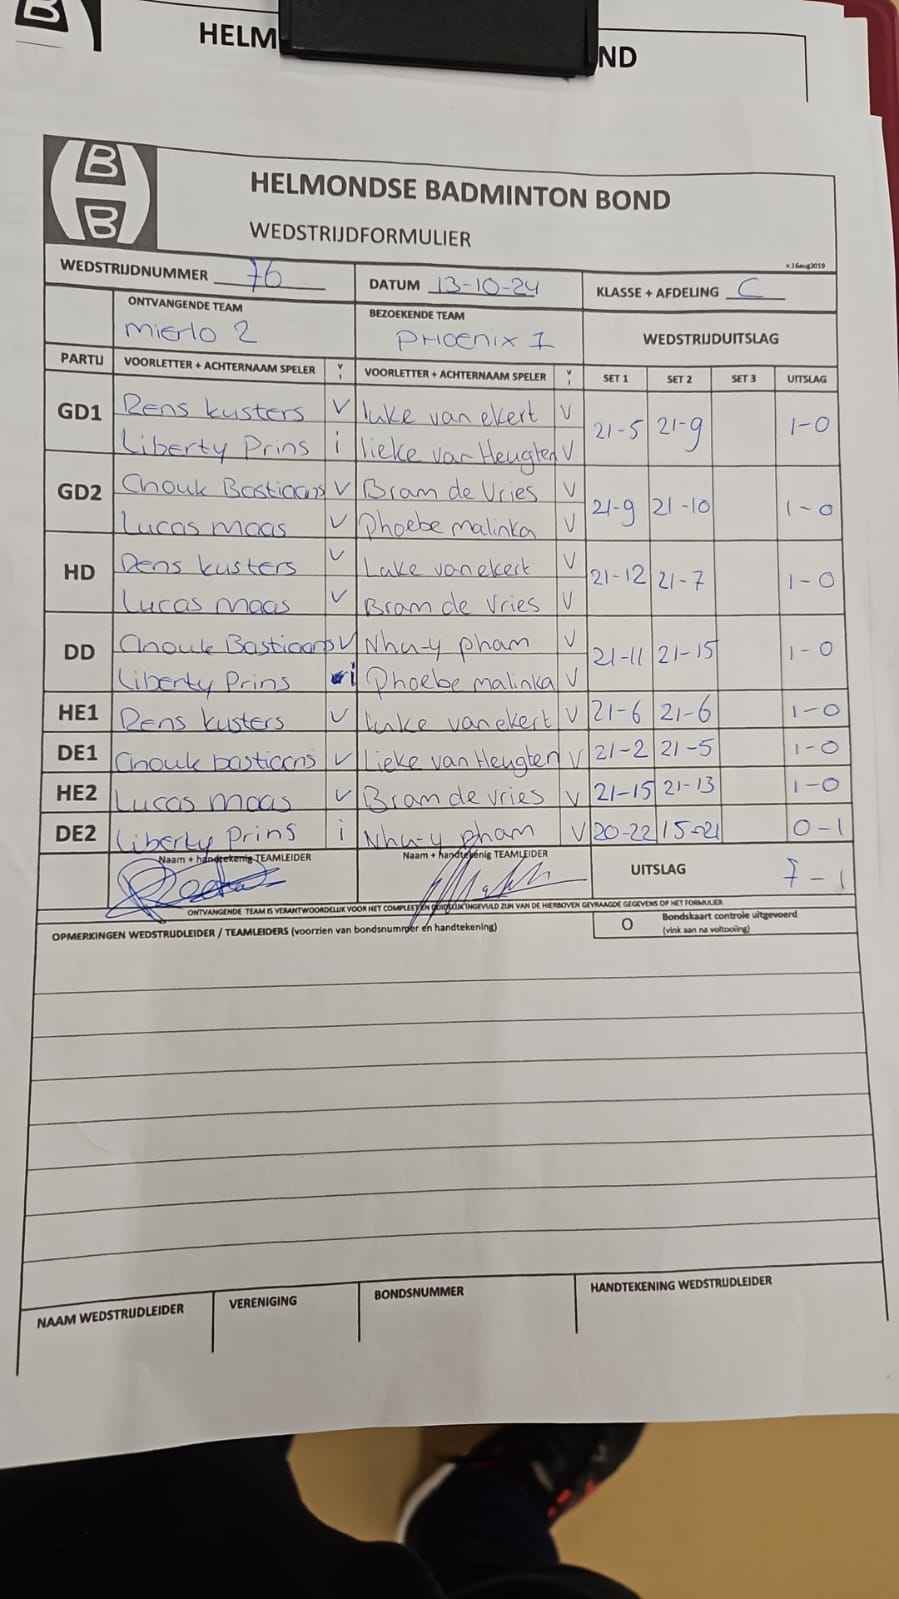 B
HELM
ND
B
B
HELMONDSE BADMINTON BOND
WEDSTRIJDFORMULIER
v.16aug2019
WEDSTRIJDNUMMER 76 DATUM 13-10-24 KLASSE + AFDELING C
ONTVANGENDE TEAM BEZOEKENDE TEAM WEDSTRIJDUITSLAG
Mierlo 2 PHoenix 1
PARTIJ VOORLETTER + ACHTERNAAM SPELER V/I VOORLETTER + ACHTERNAAM SPELER V/I SET 1 SET 2 SET 3 UITSLAG
GD1 Rens kusters V luke van ekert V 21-5 21-9 1-0
Liberty Prins i lieke van Heugten V
GD2 Anouk Bastiaans V Bram de Vries V 21-9 21-10 1-0
Lucas maas V Phoebe malinka V
HD Rens kusters V Luke van ekert V 21-12 21-7 1-0
Lucas maas V Bram de Vries V
DD Anouk Bastiaans V Nhu-y pham V 21-11 21-15 1-0
Liberty Prins i Phoebe malinka V
HE1 Rens kusters V Luke van ekert V 21-6 21-6 1-0
DE1 Anouk bastiaans V Lieke van Heugten V 21-2 21-5 1-0
HE2 Lucas maas V Bram de vries V 21-15 21-13 1-0
DE2 Liberty Prins i Nhu-y pham V 20-22 15-21 0-1
Naam + handtekenig TEAMLEIDER Naam + handtekenig TEAMLEIDER UITSLAG 7-1
ONTVANGENDE TEAM IS VERANTWOORDELIJK VOOR HET COMPLEET EN DUIDELIJK INGEVULD ZIJN VAN DE HIERBOVEN GEVRAAGDE GEGEVENS OP HET FORMULIER
OPMERKINGEN WEDSTRIJDLEIDER / TEAMLEIDERS (voorzien van bondsnummer en handtekening) O Bondskaart controle uitgevoerd
(vink aan na voltooiing)
NAAM WEDSTRIJDLEIDER VERENIGING BONDSNUMMER HANDTEKENING WEDSTRIJDLEIDER